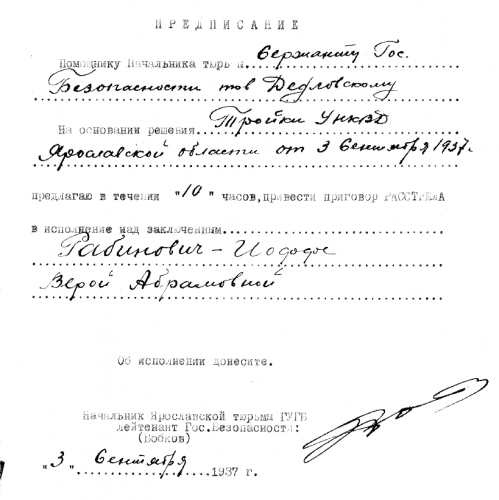 ПРЕДПИСАНИЕ
Помощнику Начальника тюрьм Сержанту Гос.
Безопасности тов Дедловскому
На основании решения Тройки УНКВД
Ярославской области от 3 Сентября 1937г.
предлагаю в течении "10" часов, привести приговор РАССТРЕЛА
в исполнение над заключенным
Рабинович-
Верой Абрамовной
Об исполнении донесите.
Начальник Ярославской тюрьмы ГУГБ
лейтенант Гос.Безопасности:
(Бобков)
"3" Сентября 1937 г.